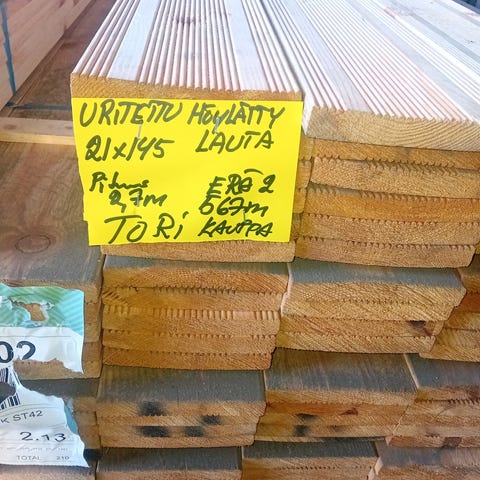 URITETTU HÖYLÄTTY
21x145 LAUTA
Pituus ERÄ 2
2,7m 667m
TORI KAUPPA
02
K ST42
2.13
TOTAL 210